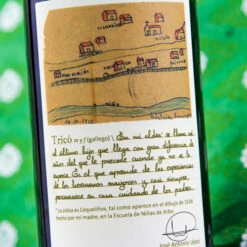 Tricó m y f (gallego) \ En mi aldea se llama así
al último hijo que llega con gran diferencia de
años del que le precede cuando ya no se le
espera. Es el que aprende de las
de los hermanos mayores y casi siempre,
permanece en casa cuidando de los padres.
"La viñeta es Cequeliños, tal como aparece en el dibujo de 1938
hecho por mi madre, en la Escuela de Niñas de Arbo.
José Antonio López